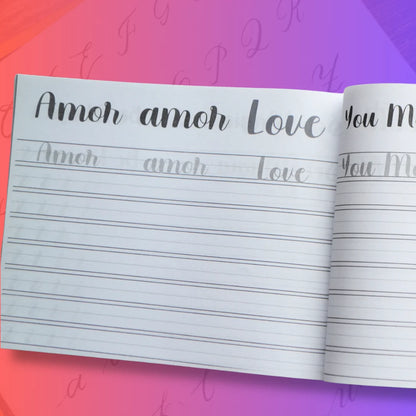 Amor amor Love
Amor amor Love
You
You